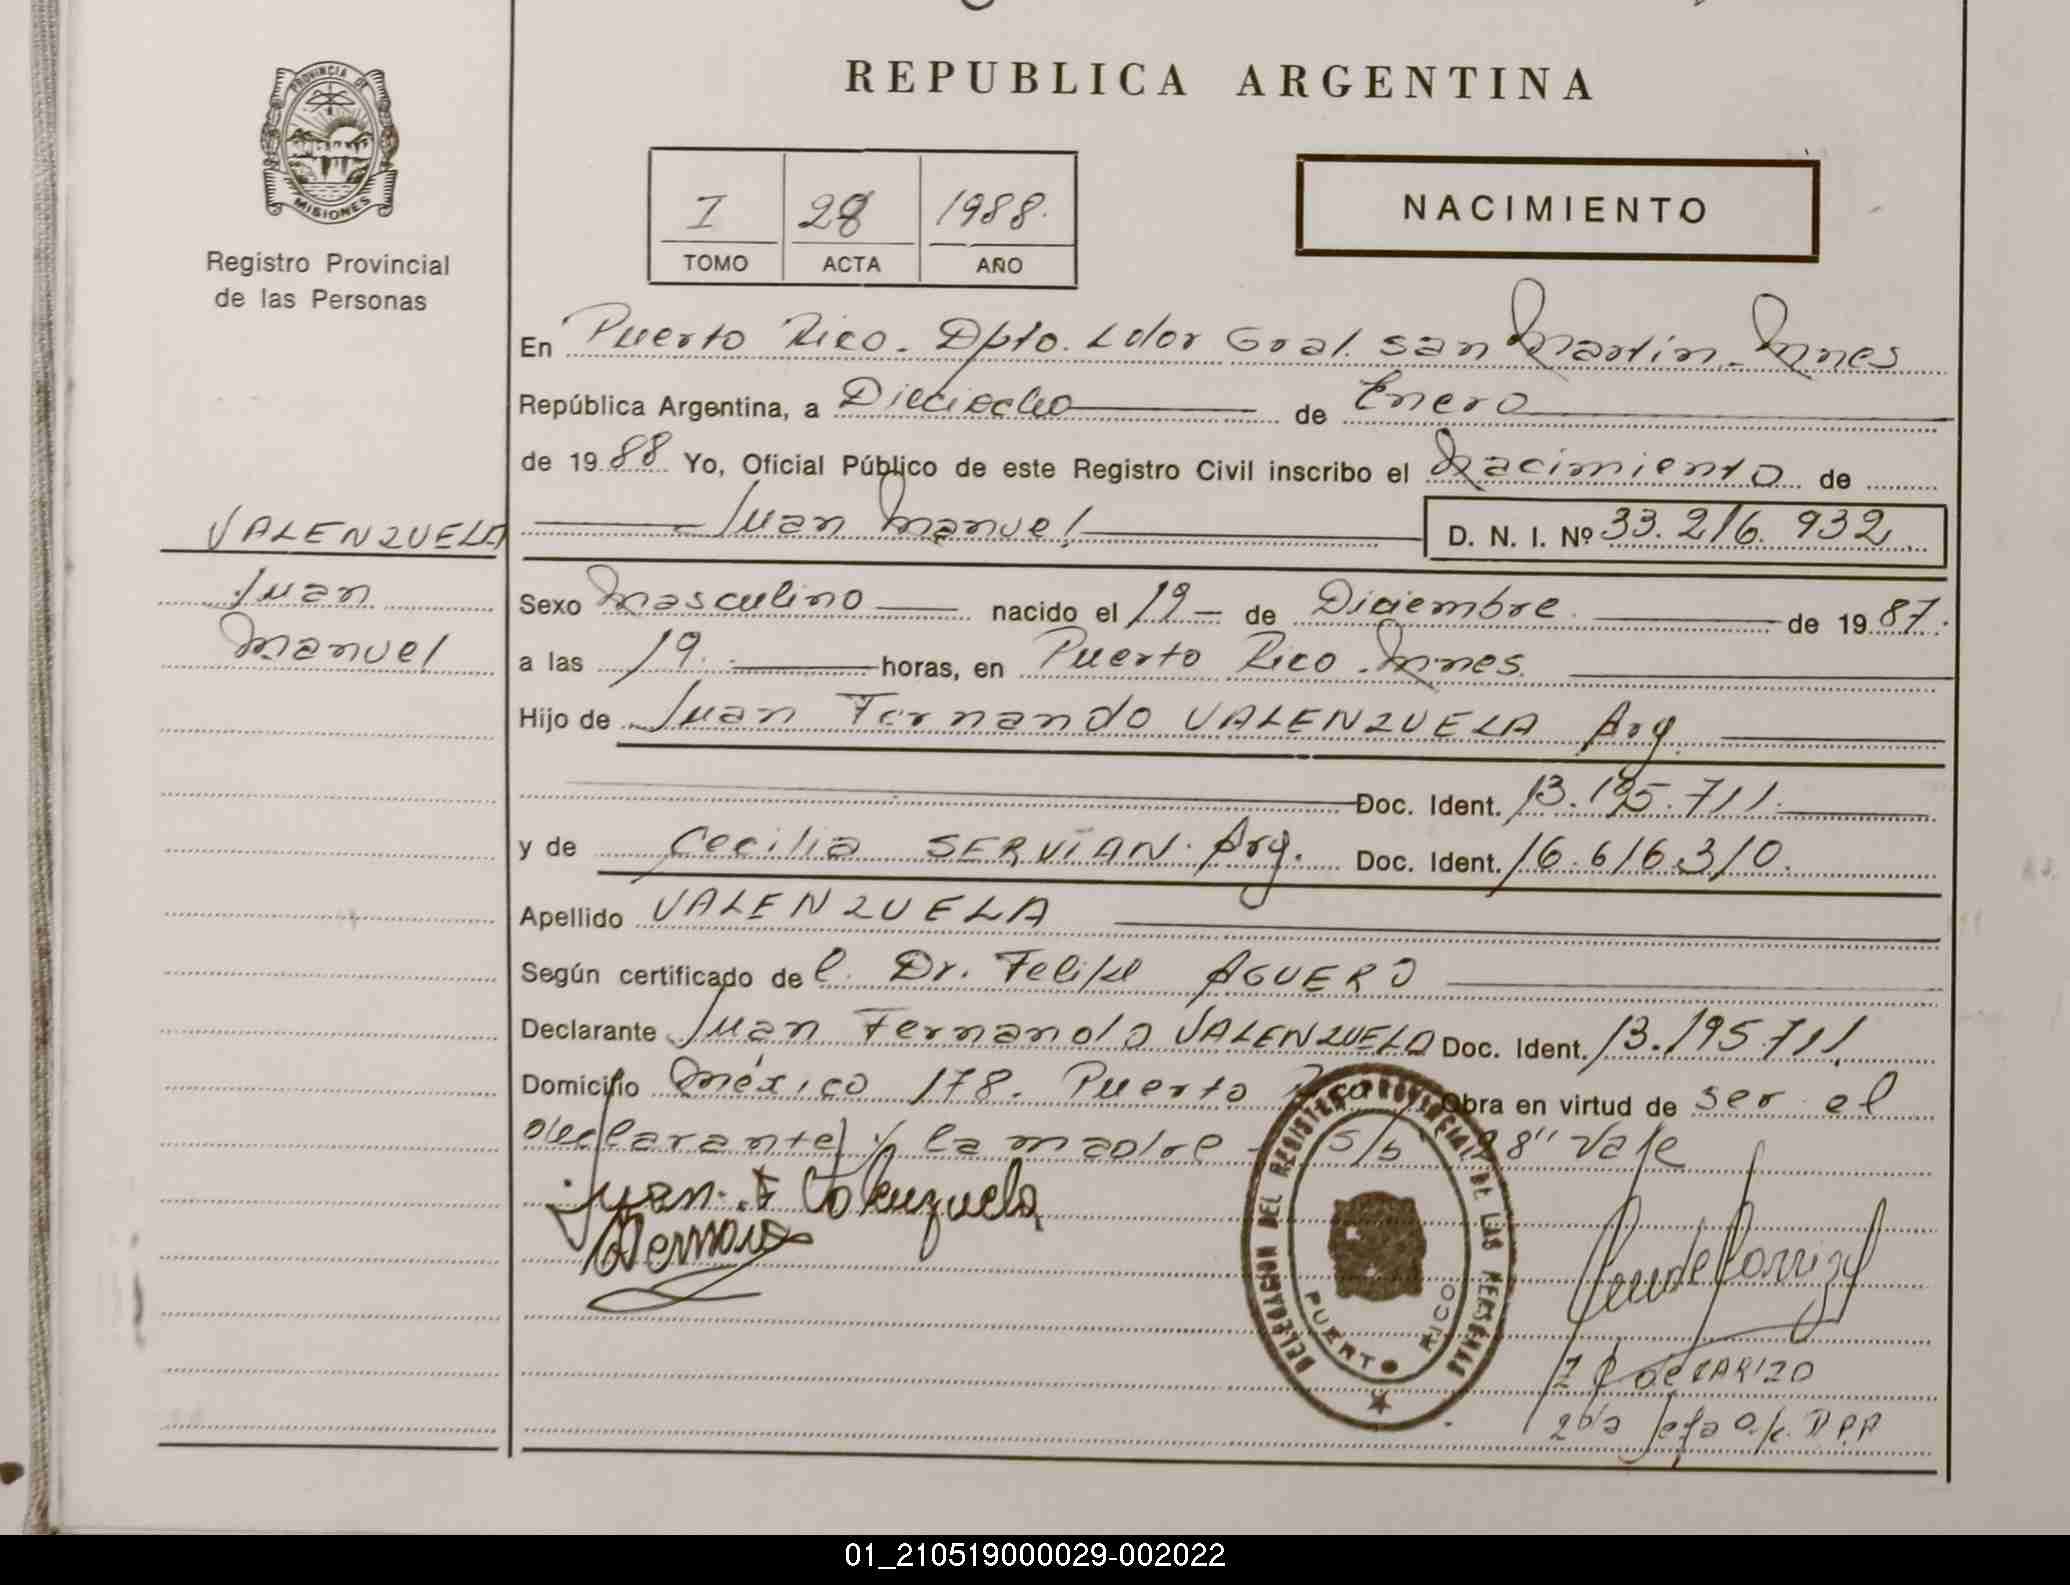 REPUBLICA ARGENTINA
PROVINCIA DE
MISIONES
Registro Provincial
de las Personas
I 28 1988.
TOMO ACTA AÑO
NACIMIENTO
En Puerto Rico. Dpto. Ldor Gral. San Martín. Mnes
República Argentina, a Dieciocho de Enero
de 1988 Yo, Oficial Público de este Registro Civil inscribo el Nacimiento de
VALENZUELA
Juan
Manuel
Juan Manuel D. N. I. Nº 33.216.932
Sexo Masculino nacido el 19 de Diciembre de 1987.
a las 19. horas, en Puerto Rico. Mnes.
Hijo de Juan Fernando VALENZUELA Arg.
Doc. Ident. 13.195.711.
y de Cecilia SERVIAN. Arg. Doc. Ident. 16.616.310.
Apellido VALENZUELA
Según certificado del. Dr. Felipe AGUERO
Declarante Juan Fernando VALENZUELA Doc. Ident. 13.195.711
Domicilio México 178. Puerto Rico Obra en virtud de ser el
declarante y la madre - S/b 28" Vale
Juan F Valenzuela
DELEGACION DEL REGISTRO PROVINCIAL DE LAS PERSONAS
PUERTO RICO
de CARIZO
2da Jefa
01_210519000029-002022